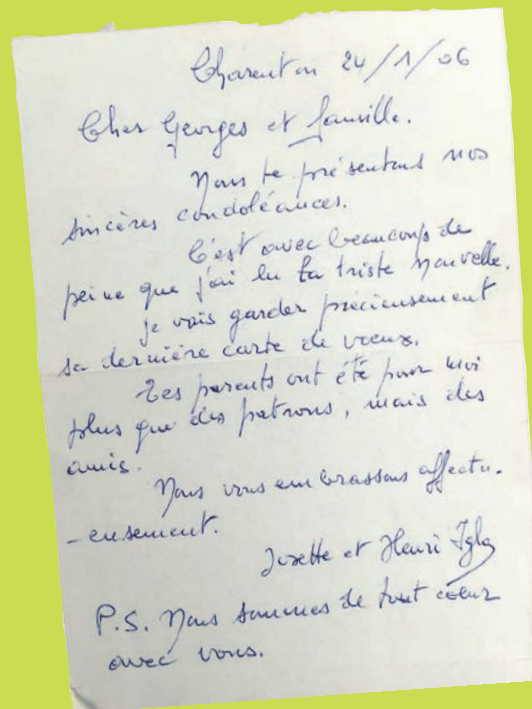 Charenton 24/1/06
Cher Georges et famille.
Nous te présentons nos
sincères condoléances.
C'est avec beaucoup de
peine que j'ai lu ta triste nouvelle.
je vais garder précieusement
sa dernière carte de vœux.
Tes parents ont été pour moi
plus que des patrons, mais des
amis.
Nous vous embrassons affectu-
-eusement.
Josette et Henri
P.S. Nous sommes de tout cœur
avec vous.